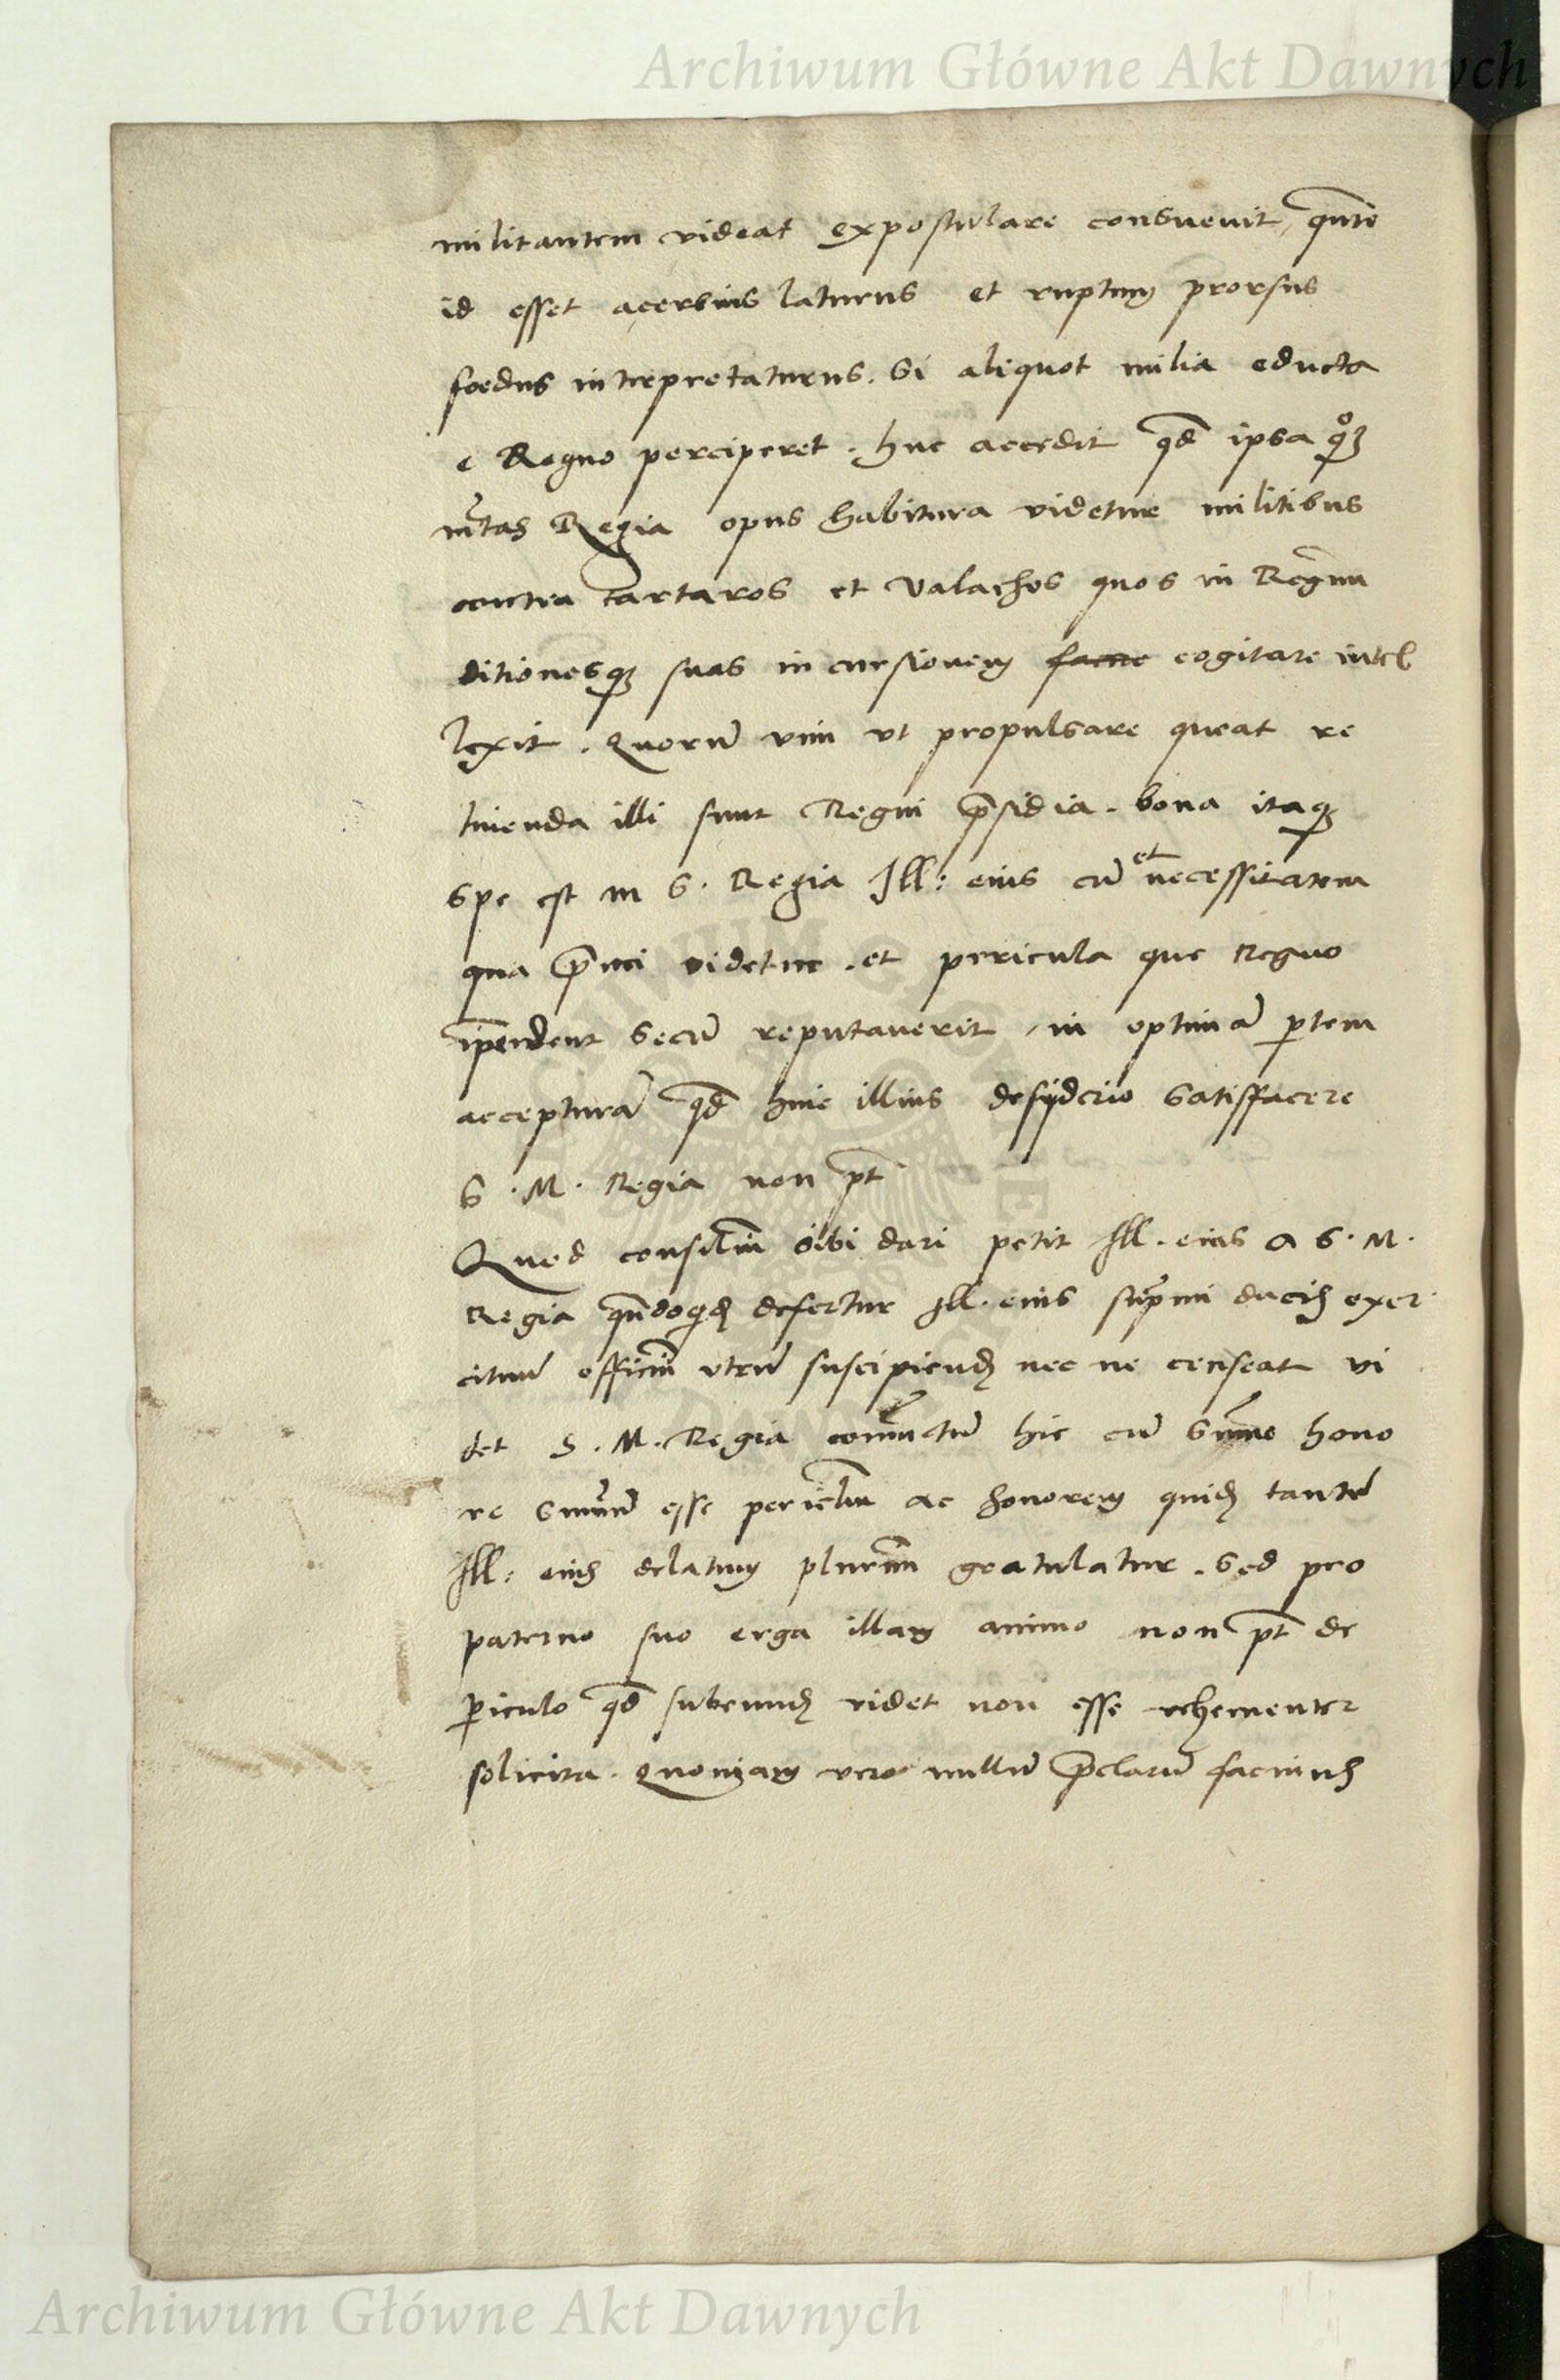 Archiwum Główne Akt Dawnych
militantem videat expostulare consuevit, qnto
id esset acerbius laturus et ruptum prorsus
foedus interpretaturus. Si aliquot milia educta
e Regno perciperet. huc accedit qd ipsa qoqȝ
mtas Regia opus habitura videtur militibus
contra tartaros et Valachos quos in Regnu
ditionesqȝ suas incursionem facere cogitare intel
lexit. Quorū vim ut propulsare queat re
tinenda illi sunt Regni p̄sidia. bona itaqȝ
spe est M S. Regia Ill: eius cū et necessitatem
qua p̄mi videtur. et pericula que Regno
īpendent secū reputaverit, in optimā ptem
accepturā qd huic illius desyderio satisfacere
S. M. Regia non pt
Quod consiliū sibi dari petit Ill. eius a S. M.
Regia qn̄doqd defertur Ill. eius sup̄mi ducis exer
cituū officiū utrū suscipiend nec ne censeat vi
det S. M. Regia coniūctū hic cū sūmo hono
re sūmū esse periclm ac honorem quid tantū
Ill: eius delatum plurimū gratulatur. Sed pro
paterno suo erga illam animo non pt de
piculo qd subeund videt non esse vehementer
solicita. Quoniam vero nullū p̄clarū facinus
Archiwum Główne Akt Dawnych